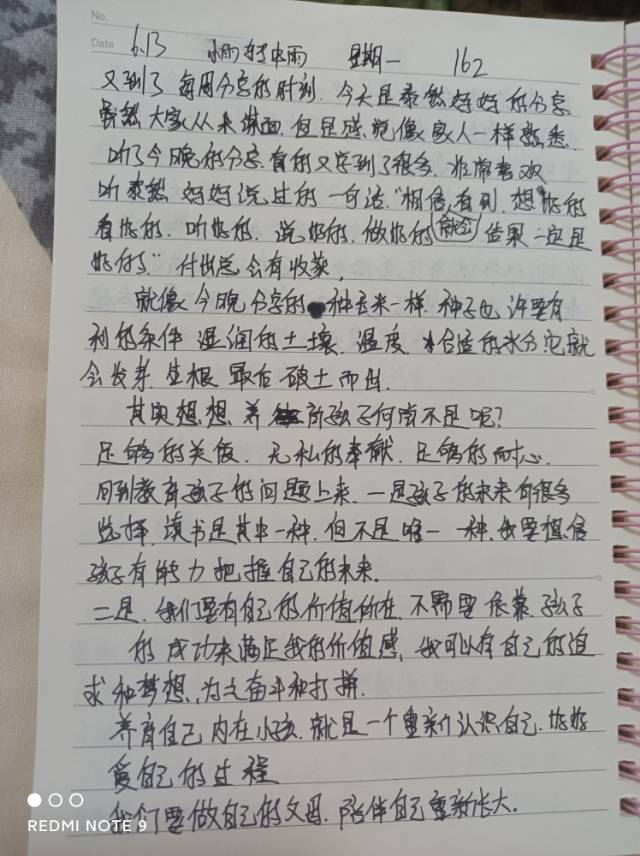 No.
Date 6.13 小雨转中雨 星期一 162
又到了每周分享的时刻.今天是泰然好好的分享
虽然大家从来谋面.但是感觉像家人一样熟悉.
听了今晚的分享.真的又学到了很多.非常喜欢
听泰然好好说过的一句话."相信,看到.想好的
看好的.听好的.说好的.做好的就会结果一定是
好的."付出总会有收获,
就像今晚分享的种玉米一样.种子也许要有
利的条件湿润的土壤.温度.合适的水分它就
会发芽生根最后破土而出.
其实想想.养育孩子何尝不是呢?
足够的关爱.无私的奉献.足够的耐心.
回到教育孩子的问题上来.一是孩子的未来有很多
选择.读书是其中一种.但不是唯一一种.我要相信
孩子有能力把握自己的未来.
二是.我们要有自己的价值所在.不需要依靠孩子
的成功来满足我的价值感,我可以有自己的追
求和梦想.为之奋斗和打拼.
养育自己内在小孩.就是一个重新认识自己.好好
爱自己的过程
我们要做自己的父母.陪伴自己重新长大.
REDMI NOTE 9